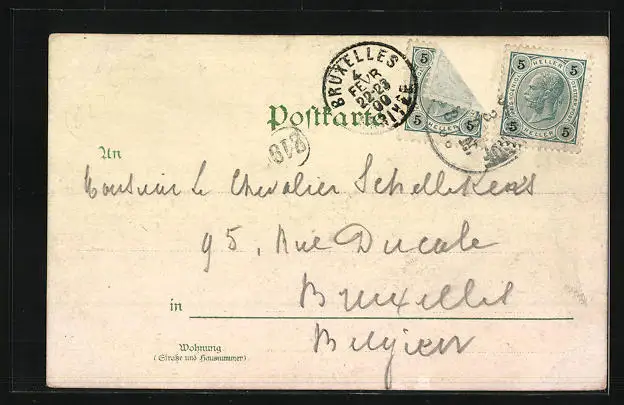 BRUXELLES
4
FEVR
22-23
1900
ARRIVEE
5 HELLER 5
5 HELLER 5
5 HELLER 5
Postkarte
218
An
Monsieur le Chevalier Schellekens
95, Rue Ducale
in Bruxelles
Belgien
Wohnung
(Straße und Hausnummer)